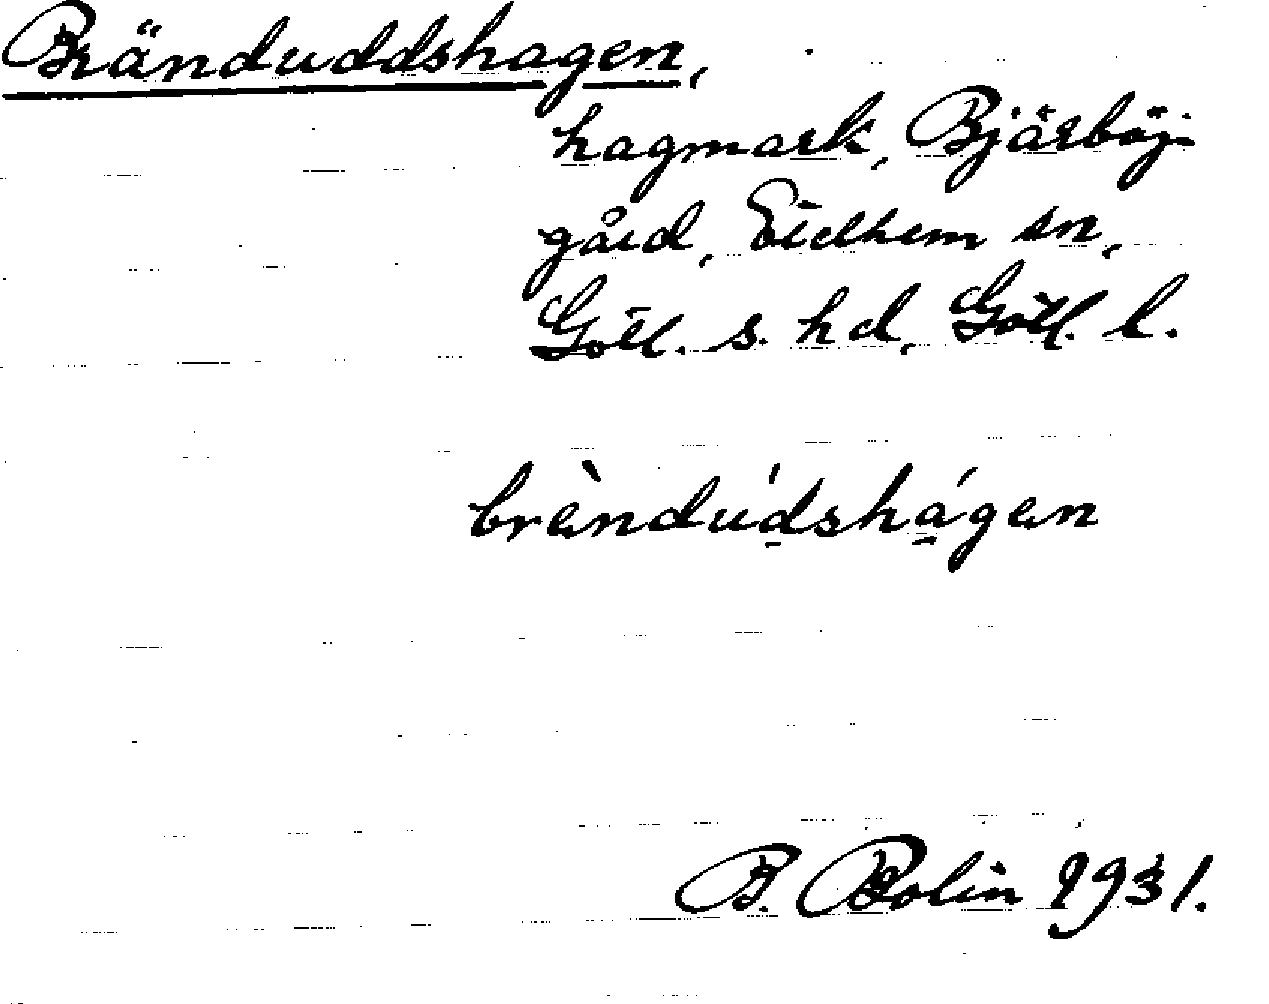 Bränduddshagen,
hagmark, Bjärböj-
gård, Eidhem sn,
Gotl. s. hd, Gotl. l.
brὰndúdshágan
B. Bolin 1931.